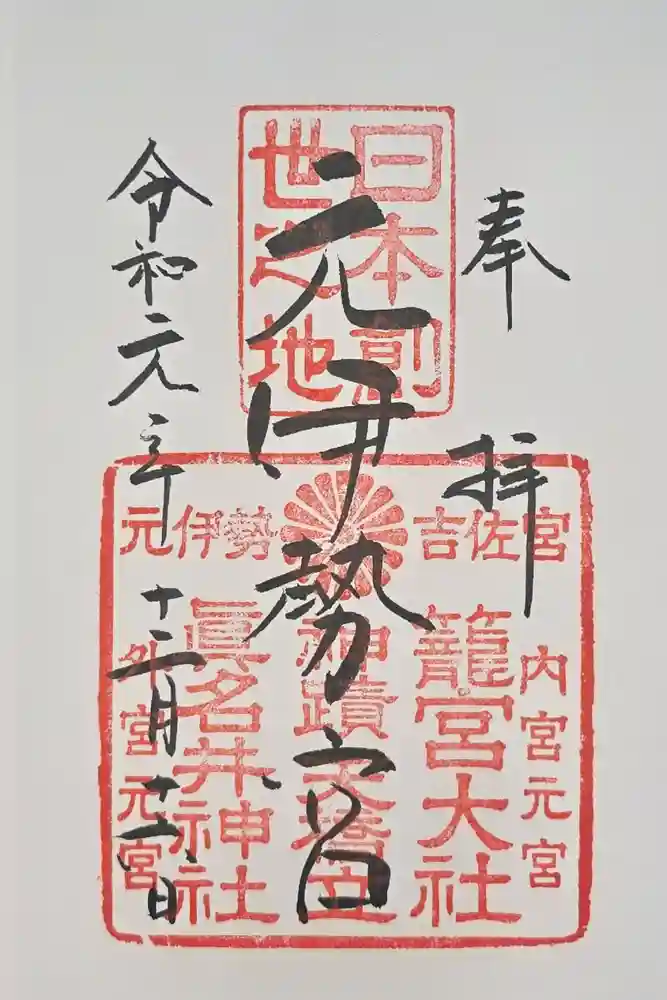 奉拝
元伊勢宮
令和元年十二月十一日
日本創
世之地
元伊勢 吉佐宮
内宮元宮
籠宮大社
神蹟天橋立
眞名井神社
外宮元宮